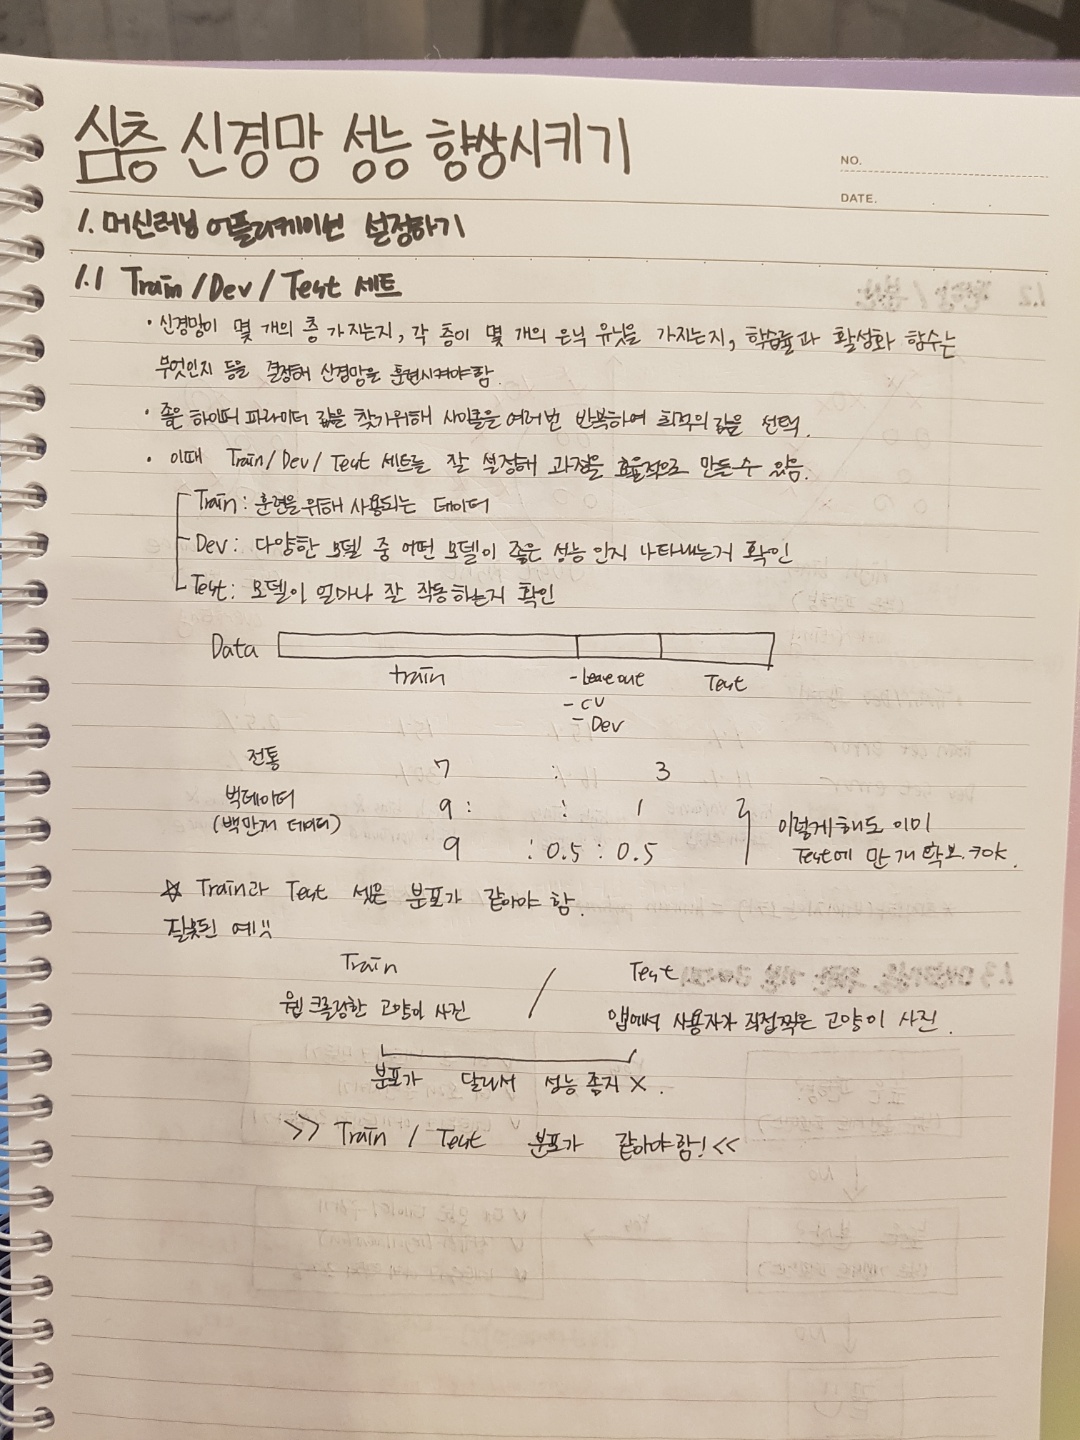 심층 신경망 성능 향상시키기
NO.
DATE.
1. 머신러닝 어플리케이션 설정하기
1.1 Train/Dev/Test 세트
· 신경망이 몇 개의 층 가지는지, 각 층이 몇 개의 은닉 유닛을 가지는지, 학습률과 활성화 함수는
무엇인지 등을 결정해 신경망을 훈련시켜야함.
· 좋은 하이퍼 파라미터 값을 찾기위해 사이클을 여러번 반복하여 최적의 값을 선택.
· 이때 Train/Dev/Test 세트를 잘 설정해 과정을 효율적으로 만들수 있음.
Train: 훈련을 위해 사용되는 데이터
Dev: 다양한 모델 중 어떤 모델이 좋은 성능 인지 나타내는거 확인
Test: 모델이 얼마나 잘 작동하는지 확인
Data
train - Leave out Test
- CV
- Dev
전통 7 : 3
빅데이터 9 : : 1
(백만개 데이터)
9 : 0.5 : 0.5
이렇게해도 이미
Test에 만 개 확보. ㅋok.
☆ Train과 Test 셋은 분포가 같아야 함.
잘못된 예!!
Train / Test
웹 크롤링한 고양이 사진 앱에서 사용자가 직접찍은 고양이 사진.
분포가 달라서 성능 좋지 X.
>> Train / Test 분포가 같아야함! <<